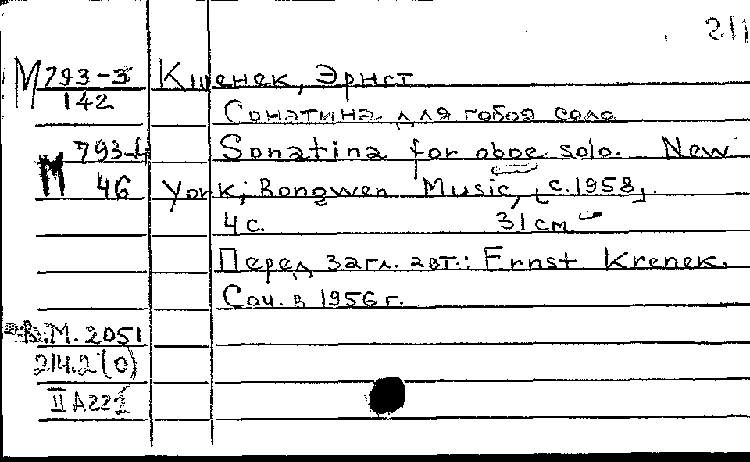 211
М 793-3 Кшенек, Эрнст
142
Сонатина для гобоя соло
793-4 Sonatina for oboe solo. New
М 46 York; Rongwen Music, [c.1958].
4 с. 31 см
Перед загл. авт.: Ernst Krenek.
Соч. в 1956 г.
В.М. 2051
214.2(0)
II А221